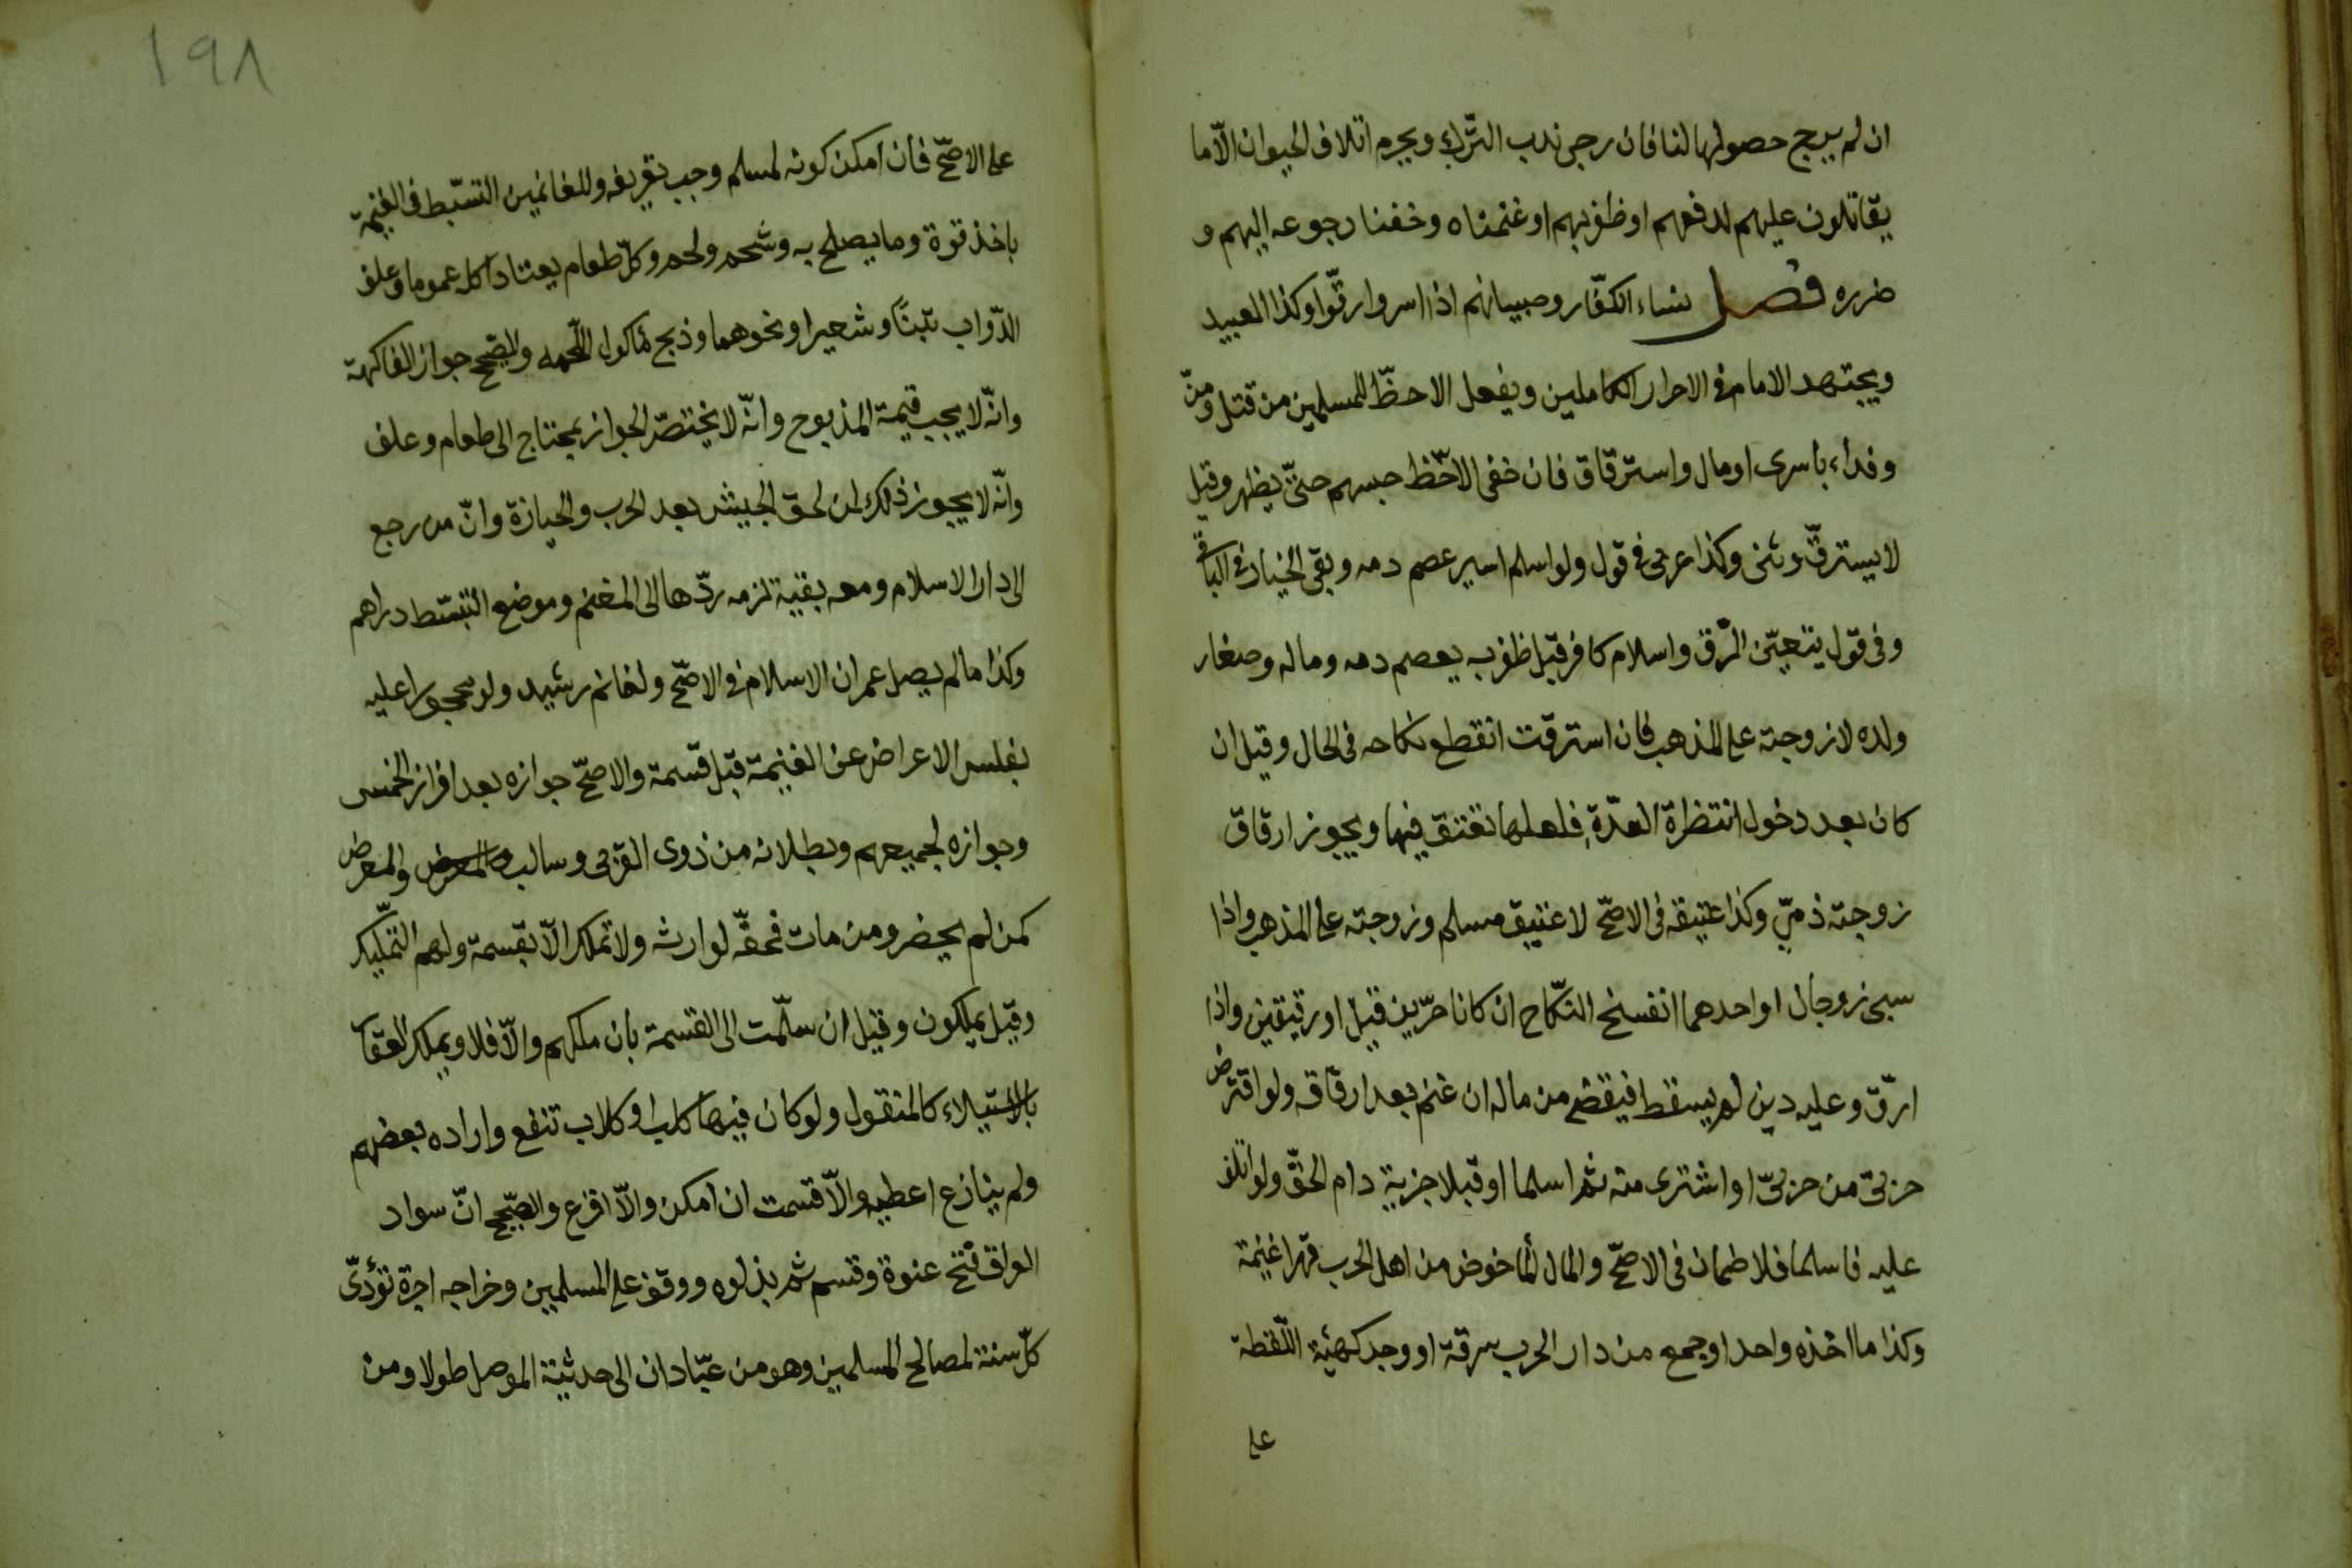 ان لم يرج حصولها لنا فان رجى ندب التّرك ويحرم اتلاف الحيوان الّا ما
يقاتلون عليهم لدفعهم او ظفر بهم او غنمناه وخفنا رجوعه اليهم و
ضرره فصل نساء الكفّار وصبيانهم اذا اسروا رقّوا وكذا العبيد
ويجتهد الامام فى الاحرار الكاملين ويفعل الاحظّ للمسلمين من قتل ومنّ
وفداء باسرى او مال واسترقاق فان خفى الاحّظ حبسهم حتىّ يظهر وقيل
لا يسترقّ وثنى وكذا عربى فى قول ولو اسلم اسير عصم دمه وبقى الخيار فى الباقى
وفى قول يتعيّن الرّق واسلام كافر قبل ظفر به يعصم دمه وماله وصغار
ولده لا زوجته على المذهب فان استرقّت انقطع نكاحه فى الحال وقيل ان
كان بعد دخول انتظرة العدّة فلعلها تعتق فيها ويجوز ارقاق
زوجته ذمّي وكذا عتيقه فى الاصحّ لا عتيق مسلم وزوجته على المذهب واذا
سبى زوجان او احدهما انفسخ النكّاح ان كانا حرّين قيل او رقيقين واذا
ارقّ وعليه دين لم يسقط فيقضى من ماله ان غنم بعد ارقاقه ولو اقترض
حربىّ من حربىّ او اشترى منه ثم اسلما او قبلا جزية دام الحقّ ولو اتلف
عليه فاسلما فلا ضمان فى الاصحّ والمال المأخوض من اهل الحرب قهرا غنيمة
وكذا ما اخذه واحد او جمع من دار الحرب سرقة او وجد كهيئة اللّقطة
على
١٩٨
على الاصحّ فان امكن كونه لمسلم وجب تعريفه وللغانمين التسّبط فى الغنيمة
باخذ قوة وما يصلح به وشحم ولحم وكلّ طعام يعتاد اكله عموما وعلف
الدّواب تبنًا وشعيرا ونحوهما وذبح مأكول اللّحمه والصّحيح جواز الفاكهة
وانّه لا يجب قيمة المذبوح وانّه لا يختصّ الجواز بمحتاج الى طعام وعلف
وانّه لا يجوز ذلك لمن لحق الجيش بعد الحرب والحيازة وانّ من رجع
الى دار الاسلام ومعه بقية لزمه ردّها الى المغنم وموضع التبسّط دراهم
وكذا ما لم يصل عمران الاسلام فى الاصحّ ولغانم رشيد ولو محجورا عليه
بفلس الاعراض عن الغنيمة قبل قسمة والاصحّ جوازه بعد افراز الخمس
وجوازه لجميعهم وبطلانه من ذوى القربى وسالب والمعرض والمعرض
كمن لم يحضر ومن مات فحقّه لوارثه ولا تملك الّا بقسمة ولهم التّمليك
وقيل يملكون وقيل ان سلّمت الى القسمة بان ملكهم والّا فلا ويملك العقّار
بالاستيلاء كالمنقول ولو كان فيها كلب او كلاب تنفع واراده بعضهم
ولم ينازع اعطيه والّا قسمت ان امكن والّا اقرع والصّحيح انّ سواد
العراق فتح عنوة وقسم ثم بذلوه ووقف على المسلمين وخراجه اجرة تؤدّى
كلّ سنة لمصالح المسلمين وهو من عبّادان الى حديثة الموصل طولا ومن